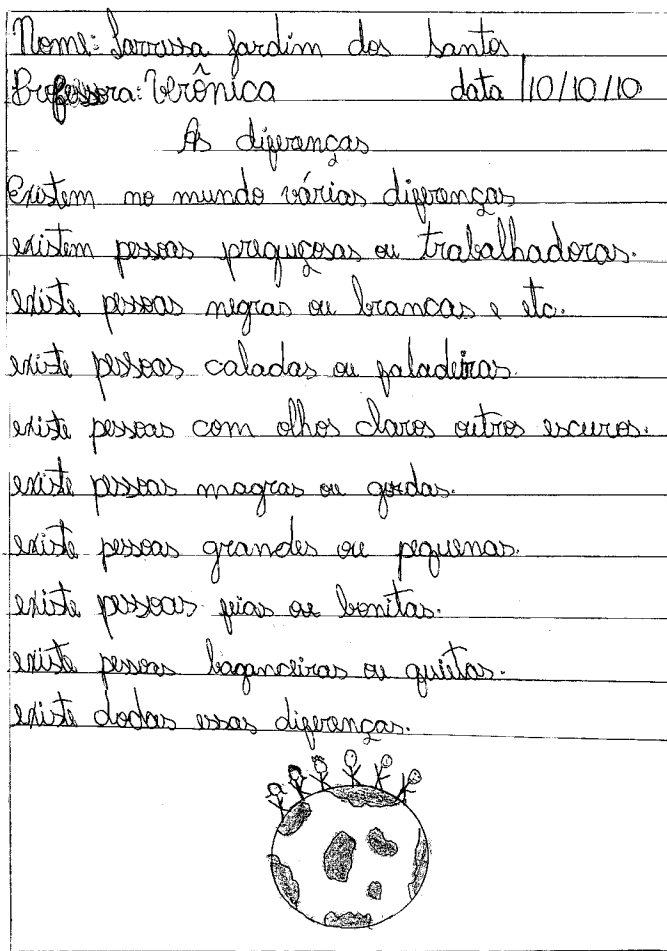 Nome: Larrissa Jardim dos Santos
Professora: Verônica data 10/10/10
As diferenças
Existem no mundo várias diferenças
existem pessoas preguçosas ou trabalhadoras.
existe pessoas negras ou brancas e etc.
existe pessoas caladas ou faladeiras.
existe pessoas com olhos claros outros escuros.
existe pessoas magras ou gordas.
existe pessoas grandes ou pequenas.
existe pessoas feias ou bonitas.
existe pessoas baganceiras ou quietas.
existe dodas essas diferenças.